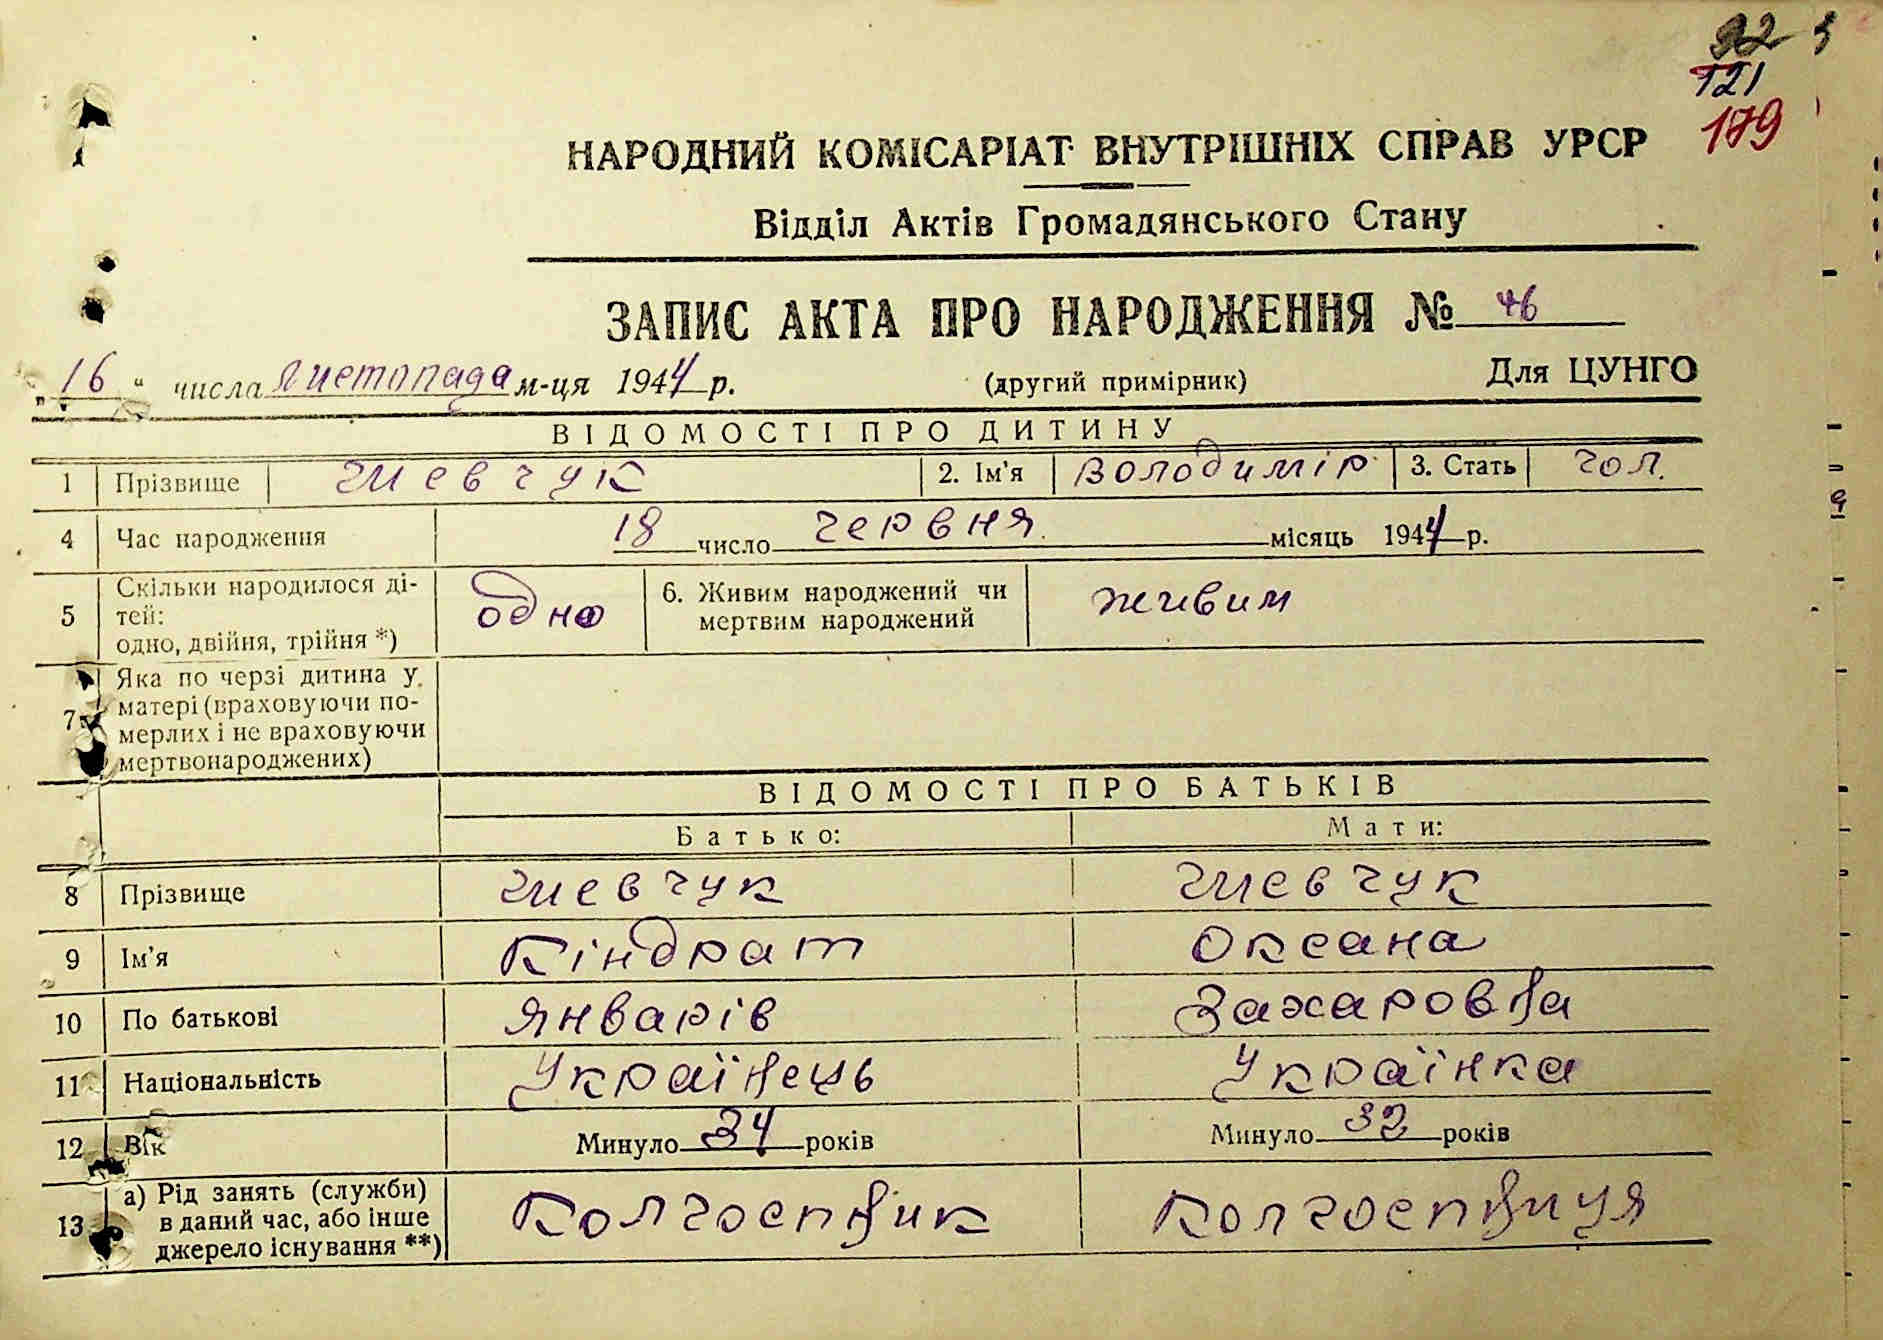 121
179
НАРОДНИЙ КОМІСАРІАТ ВНУТРІШНІХ СПРАВ УРСР
Відділ Актів Громадянського Стану
ЗАПИС АКТА ПРО НАРОДЖЕННЯ № 46
"16" числа Листопада м-ця 1944 р. (другий примірник) Для ЦУНГО
ВІДОМОСТІ ПРО ДИТИНУ
1 Прізвище Шевчук 2. Ім'я Володимір 3. Стать Чол.
4 Час народження 18 число Червня місяць 1944 р.
5 Скільки народилося ді-
тей:
одно, двійня, трійня *) одно 6. Живим народжений чи
мертвим народжений живим
7 Яка по черзі дитина у
матері (враховуючи по-
мерлих і не враховуючи
мертвонароджених)
ВІДОМОСТІ ПРО БАТЬКІВ
Батько: Мати:
8 Прізвище Шевчук Шевчук
9 Ім'я Кіндрат Оксана
10 По батькові Январів Захаровна
11 Національність Українець Українка
12 Вік Минуло 34 років Минуло 32 років
13 а) Рід занять (служби)
в даний час, або інше
джерело існування **) Колгоспник Колгоспниця